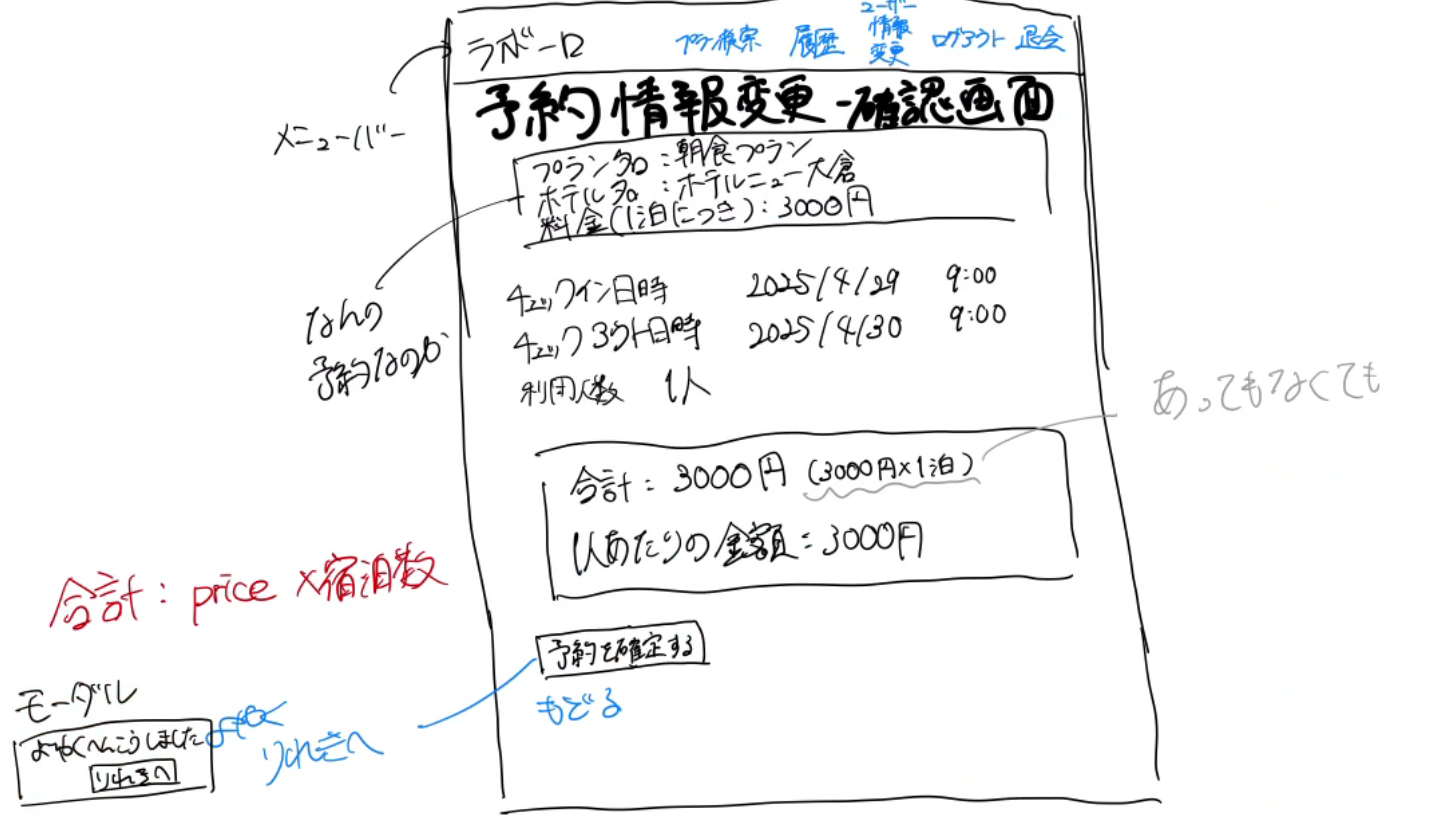 ラボーロ プラン検索 履歴 ユーザー情報変更 ログアウト 退会
メニューバー
予約情報変更-確認画面
プラン名:朝食プラン
ホテル名:ホテルニュー大倉
料金(1泊につき):3000円
なんの
予約なのか
チェックイン日時 2025/4/29 9:00
チェックアウト日時 2025/4/30 9:00
利用人数 1人
あってもなくても
合計:3000円 (3000円×1泊)
1人あたりの金額:3000円
合計:price×宿泊数
予約を確定する
もどる
モーダル
よやくへんこうしました
りれきへ
りれきへ